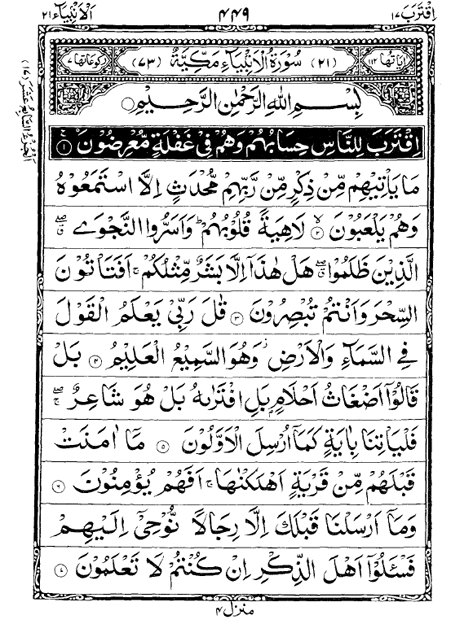 اقترب ١٧ ٤٤٩ الانبياء ٢١
اياتها ١١٢ (٢١) سُوْرَةُ الْاَنْبِيَآءِ مَكِّيَّةٌ (٧٣) ركوعاتها ٧
بِسْمِ اللهِ الرَّحْمٰنِ الرَّحِيْمِ
اِقْتَرَبَ لِلنَّاسِ حِسَابُهُمْ وَهُمْ فِيْ غَفْلَةٍ مُّعْرِضُوْنَ ۚ ١
مَا يَاْتِيْهِمْ مِّنْ ذِكْرٍ مِّنْ رَّبِّهِمْ مُّحْدَثٍ اِلَّا اسْتَمَعُوْهُ
وَهُمْ يَلْعَبُوْنَ ۙ ٢ لَاهِيَةً قُلُوْبُهُمْ ؕ وَاَسَرُّوا النَّجْوَى
الَّذِيْنَ ظَلَمُوْا هَلْ هٰذَآ اِلَّا بَشَرٌ مِّثْلُكُمْ ۚ اَفَتَاْتُوْنَ
السِّحْرَ وَاَنْتُمْ تُبْصِرُوْنَ ٣ قٰلَ رَبِّيْ يَعْلَمُ الْقَوْلَ
فِي السَّمَآءِ وَالْاَرْضِ ز وَهُوَ السَّمِيْعُ الْعَلِيْمُ ٤ بَلْ
قَالُوْٓا اَضْغَاثُ اَحْلَامٍ بَلِ افْتَرٰىهُ بَلْ هُوَ شَاعِرٌ
فَلْيَاْتِنَا بِاٰيَةٍ كَمَآ اُرْسِلَ الْاَوَّلُوْنَ ٥ مَآ اٰمَنَتْ
قَبْلَهُمْ مِّنْ قَرْيَةٍ اَهْلَكْنٰهَا ۚ اَفَهُمْ يُؤْمِنُوْنَ ٦
وَمَآ اَرْسَلْنَا قَبْلَكَ اِلَّا رِجَالًا نُّوْحِيْٓ اِلَيْهِمْ
فَسْـَٔلُوْٓا اَهْلَ الذِّكْرِ اِنْ كُنْتُمْ لَا تَعْلَمُوْنَ ٧
منزل ٤